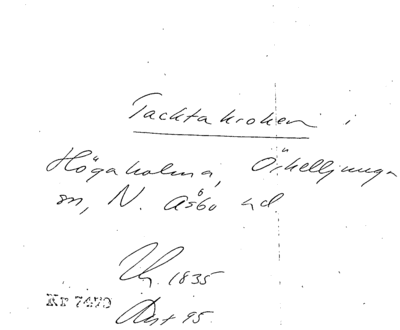 Tacktakroken i
Högaholma, Örkelljunga
sn, N. Åsbo hd.
Uhr. 1835
Kr 7470
Avst 95.